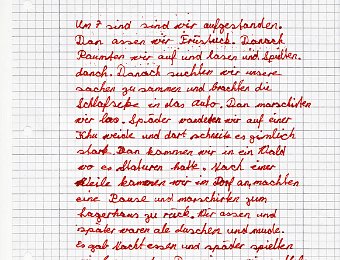 Um 7 sind sind wir aufgestanden.
Dan assen wir Früstuck. Danach
Räumten wir auf und lasen und spilten.
danch. Danach suchten wir unsere
sachen zu sammen und brachten die
Schlafseke in das Auto. Dan marschirten
wir los. Späder wanderten wir auf einer
Khu weide und dort schneite es zimlich
stark. Dan kammen wir in ein Wald
wo es Staturen hatte. Nach einer
Weile kammen wir im Dorf an, machten
eine Pause und marschirten zum
Lagerhaus zu rück. Wir assen und
später waren ale duschen und mude.
Es gab Nacht essen und später spielten